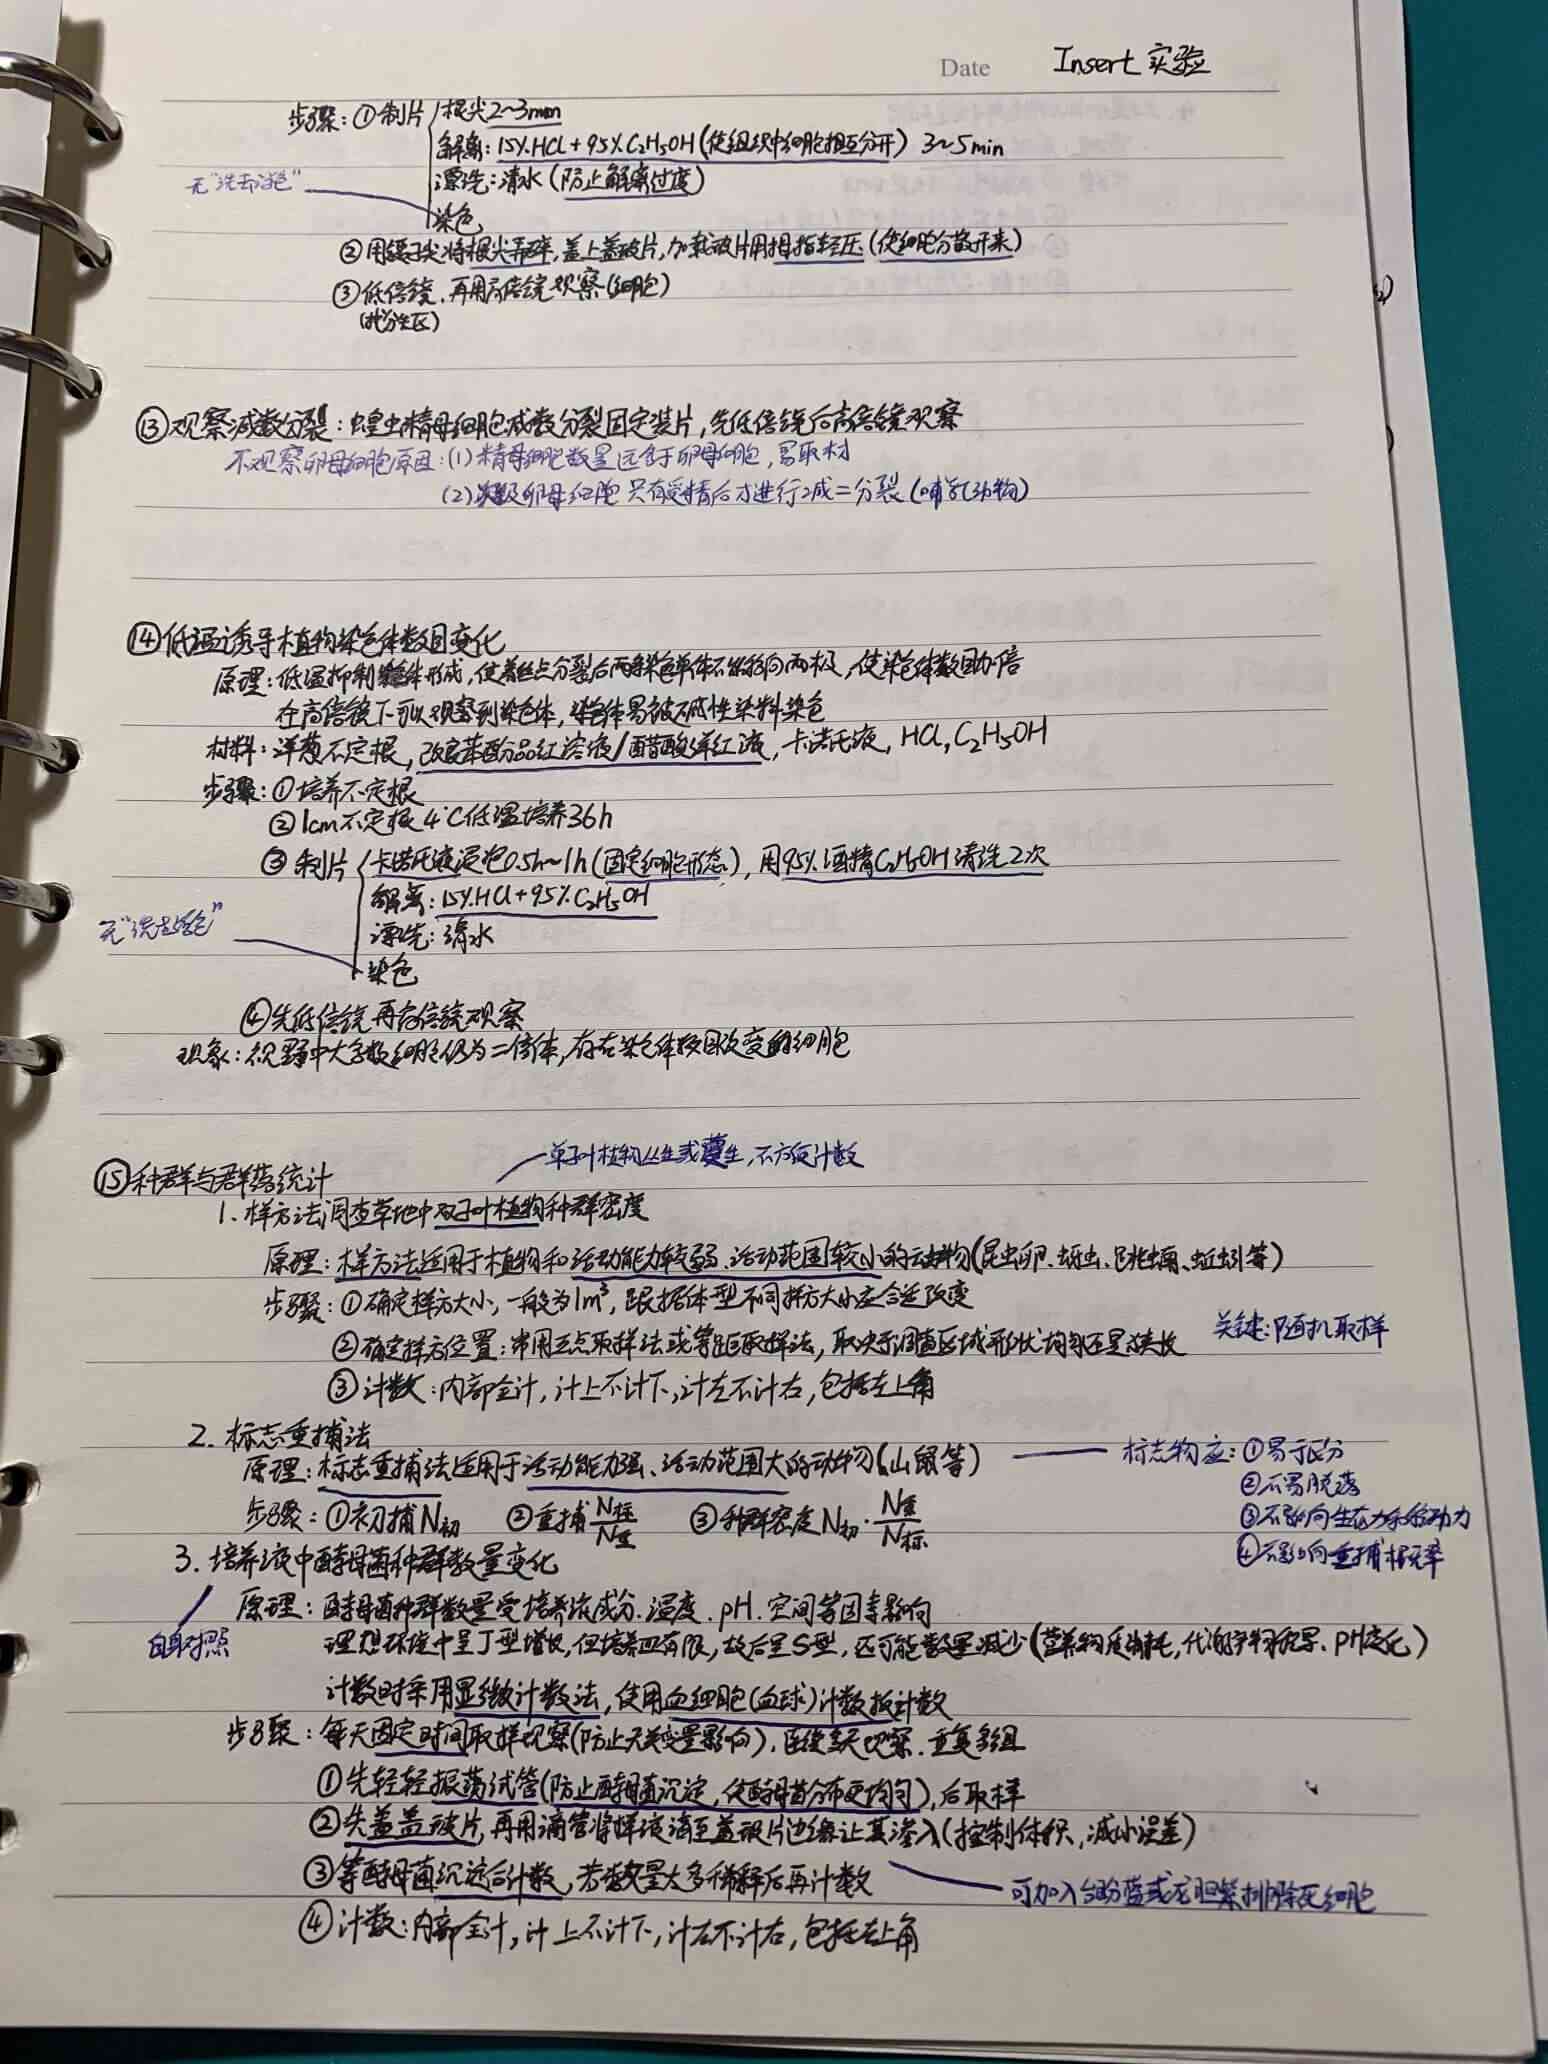 Date Insert 实验
步骤:①制片 根尖2~3mm
解离:15%HCl+95%C₂H₅OH(使组织中细胞相互分开) 3~5min
无"洗去浮色" 漂洗:清水(防止解离过度)
染色
②用镊子尖将根尖弄碎,盖上盖玻片,加载玻片用拇指轻压(使细胞分散开来)
③低倍镜,再用高倍镜观察(细胞)
(找分生区)
⑬观察减数分裂:蝗虫精母细胞减数分裂固定装片,先低倍镜后高倍镜观察
不观察卵母细胞原因:(1)精母细胞数量远多于卵母细胞,易取材
(2)次级卵母细胞只有受精后才进行减二分裂(哺乳动物)
⑭低温诱导植物染色体数目变化
原理:低温抑制纺锤体形成,使着丝点分裂后两条染色单体不能移向两极,使染色体数目加倍
在高倍镜下可以观察到染色体,染色体易被碱性染料染色
材料:洋葱不定根,改良苯酚品红溶液/醋酸洋红液,卡诺氏液,HCl,C₂H₅OH
步骤:①培养不定根
②1cm不定根4℃低温培养36h
③制片 卡诺氏液浸泡0.5h~1h(固定细胞形态),用95%酒精C₂H₅OH清洗2次
解离:15%HCl+95%C₂H₅OH
无"洗去浮色" 漂洗:清水
染色
④先低倍镜再高倍镜观察
现象:视野中大多数细胞仍为二倍体,存在染色体数目改变的细胞
单子叶植物丛生或蔓生,不方便计数
⑮种群与群落统计
1.样方法调查草地中双子叶植物种群密度
原理:样方法适用于植物和活动能力较弱、活动范围较小的动物(昆虫卵、蚜虫、跳蝻、蚯蚓等)
步骤:①确定样方大小,一般为1m³,跟据体型不同样方大小应合适改变
②确定样方位置:常用五点取样法或等距取样法,取决于调查区域形状均匀还是狭长 关键:随机取样
③计数:内部全计,计上不计下,计左不计右,包括左上角
2.标志重捕法
原理:标志重捕法适用于活动能力强、活动范围大的动物(山鼠等) 标志物应:①易于区分
②不易脱落
步骤:①初捕N初 ②重捕N标/N重 ③种群密度N初·N重/N标 ③不影响生存力和活动力
3.培养液中酵母菌种群数量变化 ④不影响重捕概率
原理:酵母菌种群数量受培养液成分、温度、pH、空间等因素影响
自身对照 理想环境中呈J型增长,但培养皿有限,故后呈S型,还可能数量减少(营养物质消耗,代谢产物积累、pH变化)
计数时采用显微计数法,使用血细胞(血球)计数板计数
步骤:每天固定时间取样观察(防止无关变量影响),连续多天观察,重复多组
①先轻轻振荡试管(防止酵母菌沉淀,使酵母菌分布更均匀),后取样
②先盖盖玻片,再用滴管将样液滴至盖玻片边缘让其渗入(控制体积,减小误差)
③等酵母菌沉淀后计数,若数量太多稀释后再计数
可加入台盼蓝或龙胆紫排除死细胞
④计数:内部全计,计上不计下,计左不计右,包括左上角